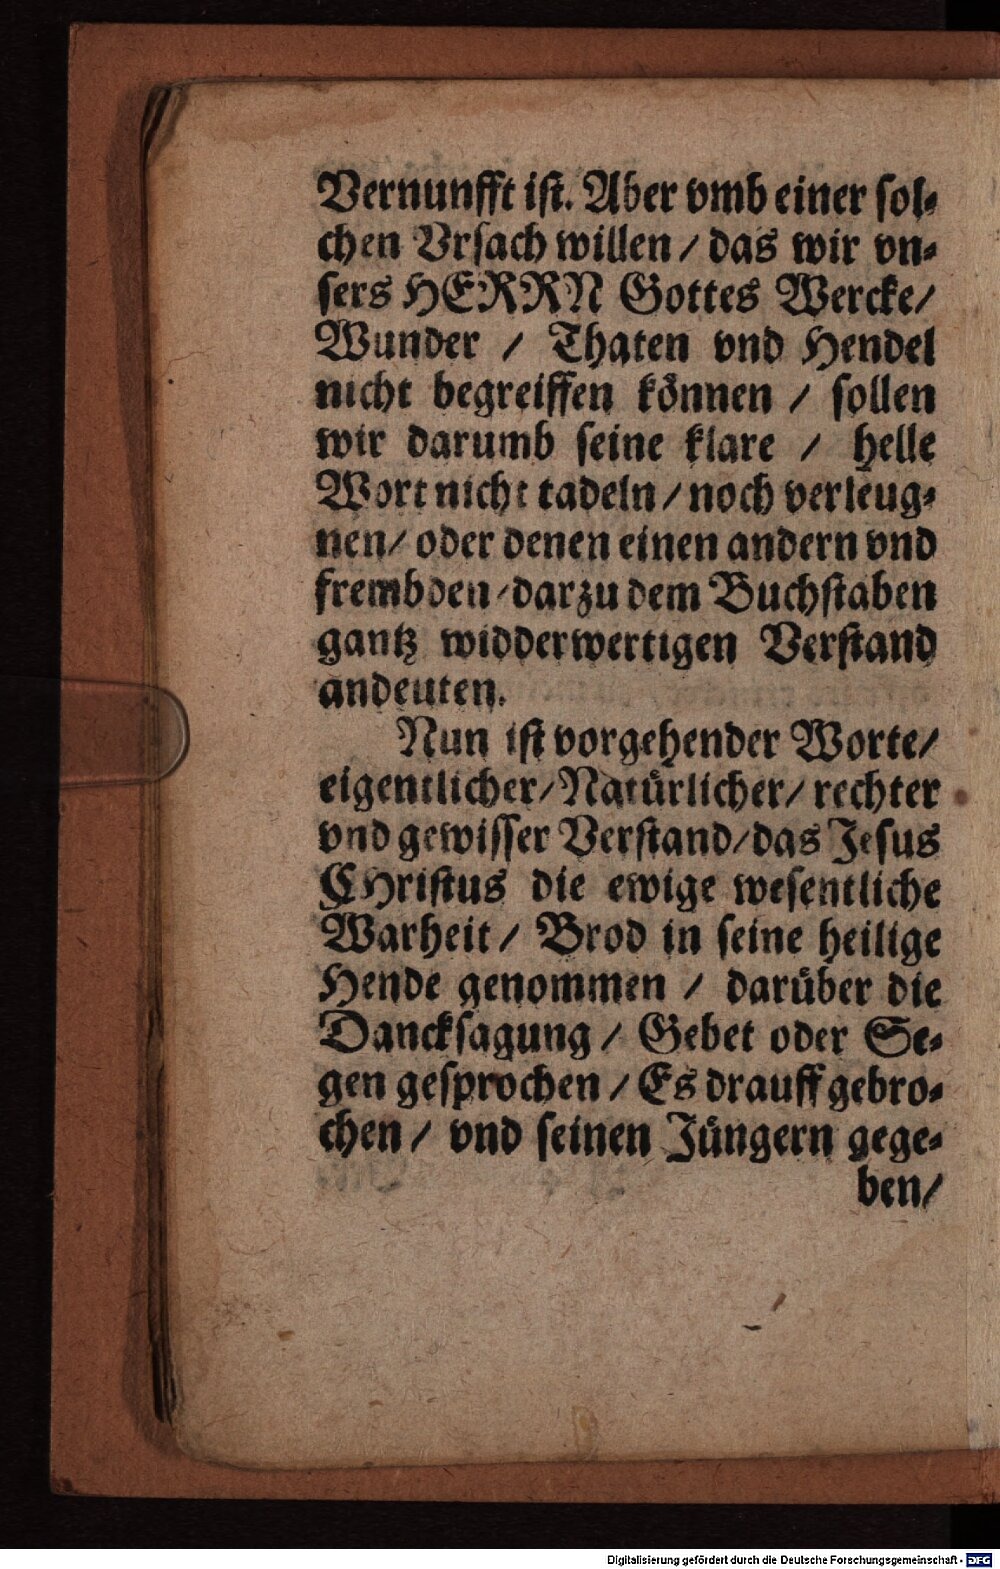 Vernunfft ist. Aber vmb einer sol-
chen Vrsach willen / das wir vn-
sers HERRN Gottes Wercke/
Wunder / Thaten vnd Hendel
nicht begreiffen können / sollen
wir darumb seine klare / helle
Wort nicht tadeln / noch verleug-
nen/ oder denen einen andern vnd
frembden/darzu dem Buchstaben
gantz widderwertigen Verstand
andeuten.
Nun ist vorgehender Worte/
eigentlicher/Natürlicher/ rechter
vnd gewisser Verstand/das Jesus
CHristus die ewige wesentliche
Warheit / Brod in seine heilige
Hende genommen / darüber die
Dancksagung / Gebet oder Se-
gen gesprochen / Es drauff gebro-
chen / vnd seinen Jüngern gege-
ben/
Digitalisierung gefördert durch die Deutsche Forschungsgemeinschaft - DFG